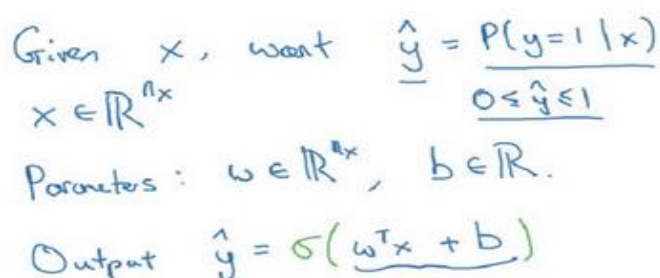 Given x, want ŷ = P(y=1|x)
x ∈ ℝⁿˣ 0 ≤ ŷ ≤ 1
Parameters: w ∈ ℝⁿˣ, b ∈ ℝ.
Output ŷ = σ(wᵀx + b)